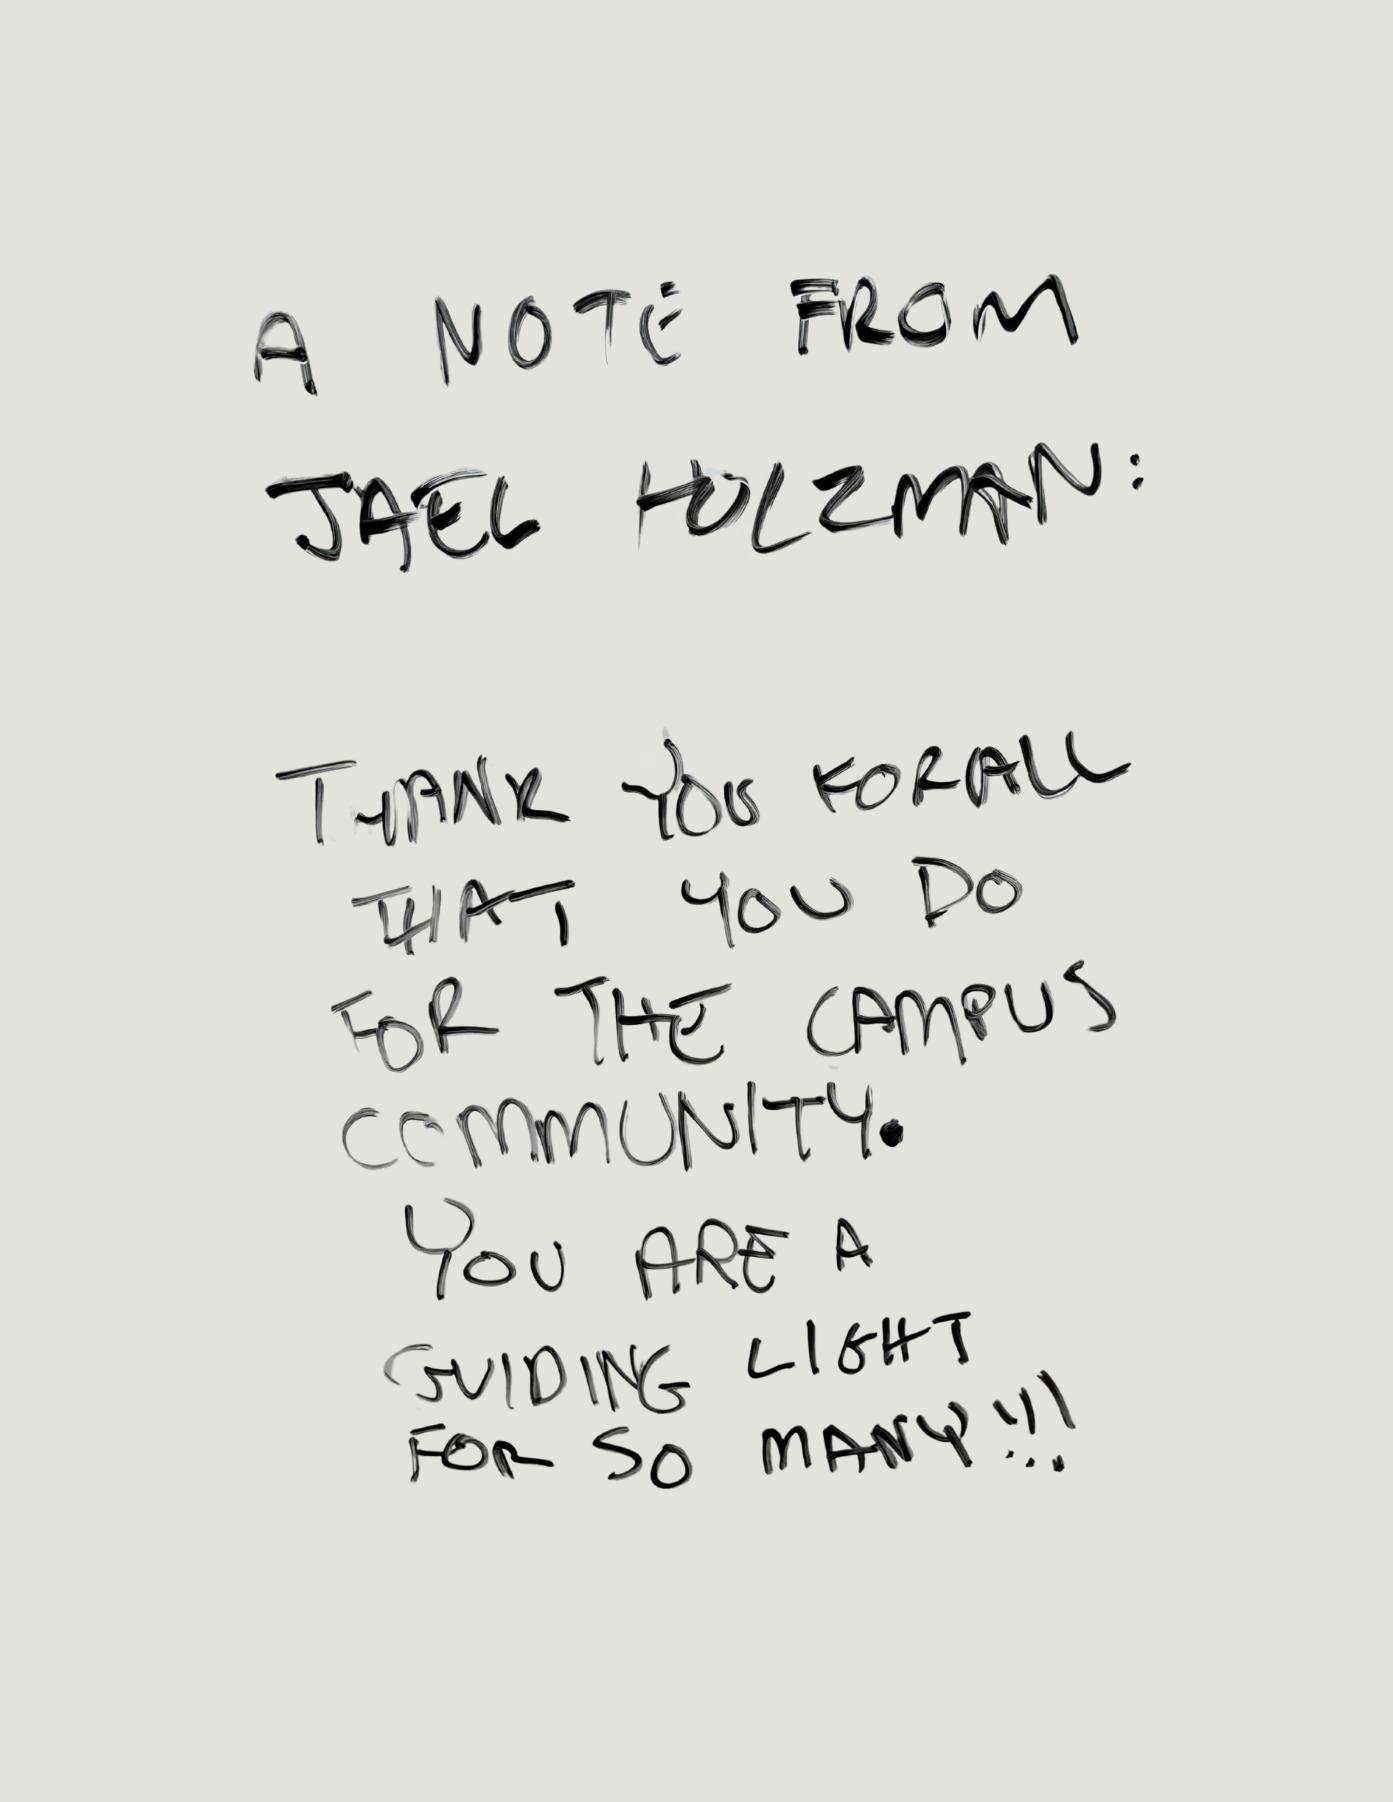 A NOTE FROM
JAEL HOLZMAN:
THANK YOU FOR ALL
THAT YOU DO
FOR THE CAMPUS
COMMUNITY.
YOU ARE A
GUIDING LIGHT
FOR SO MANY!!!